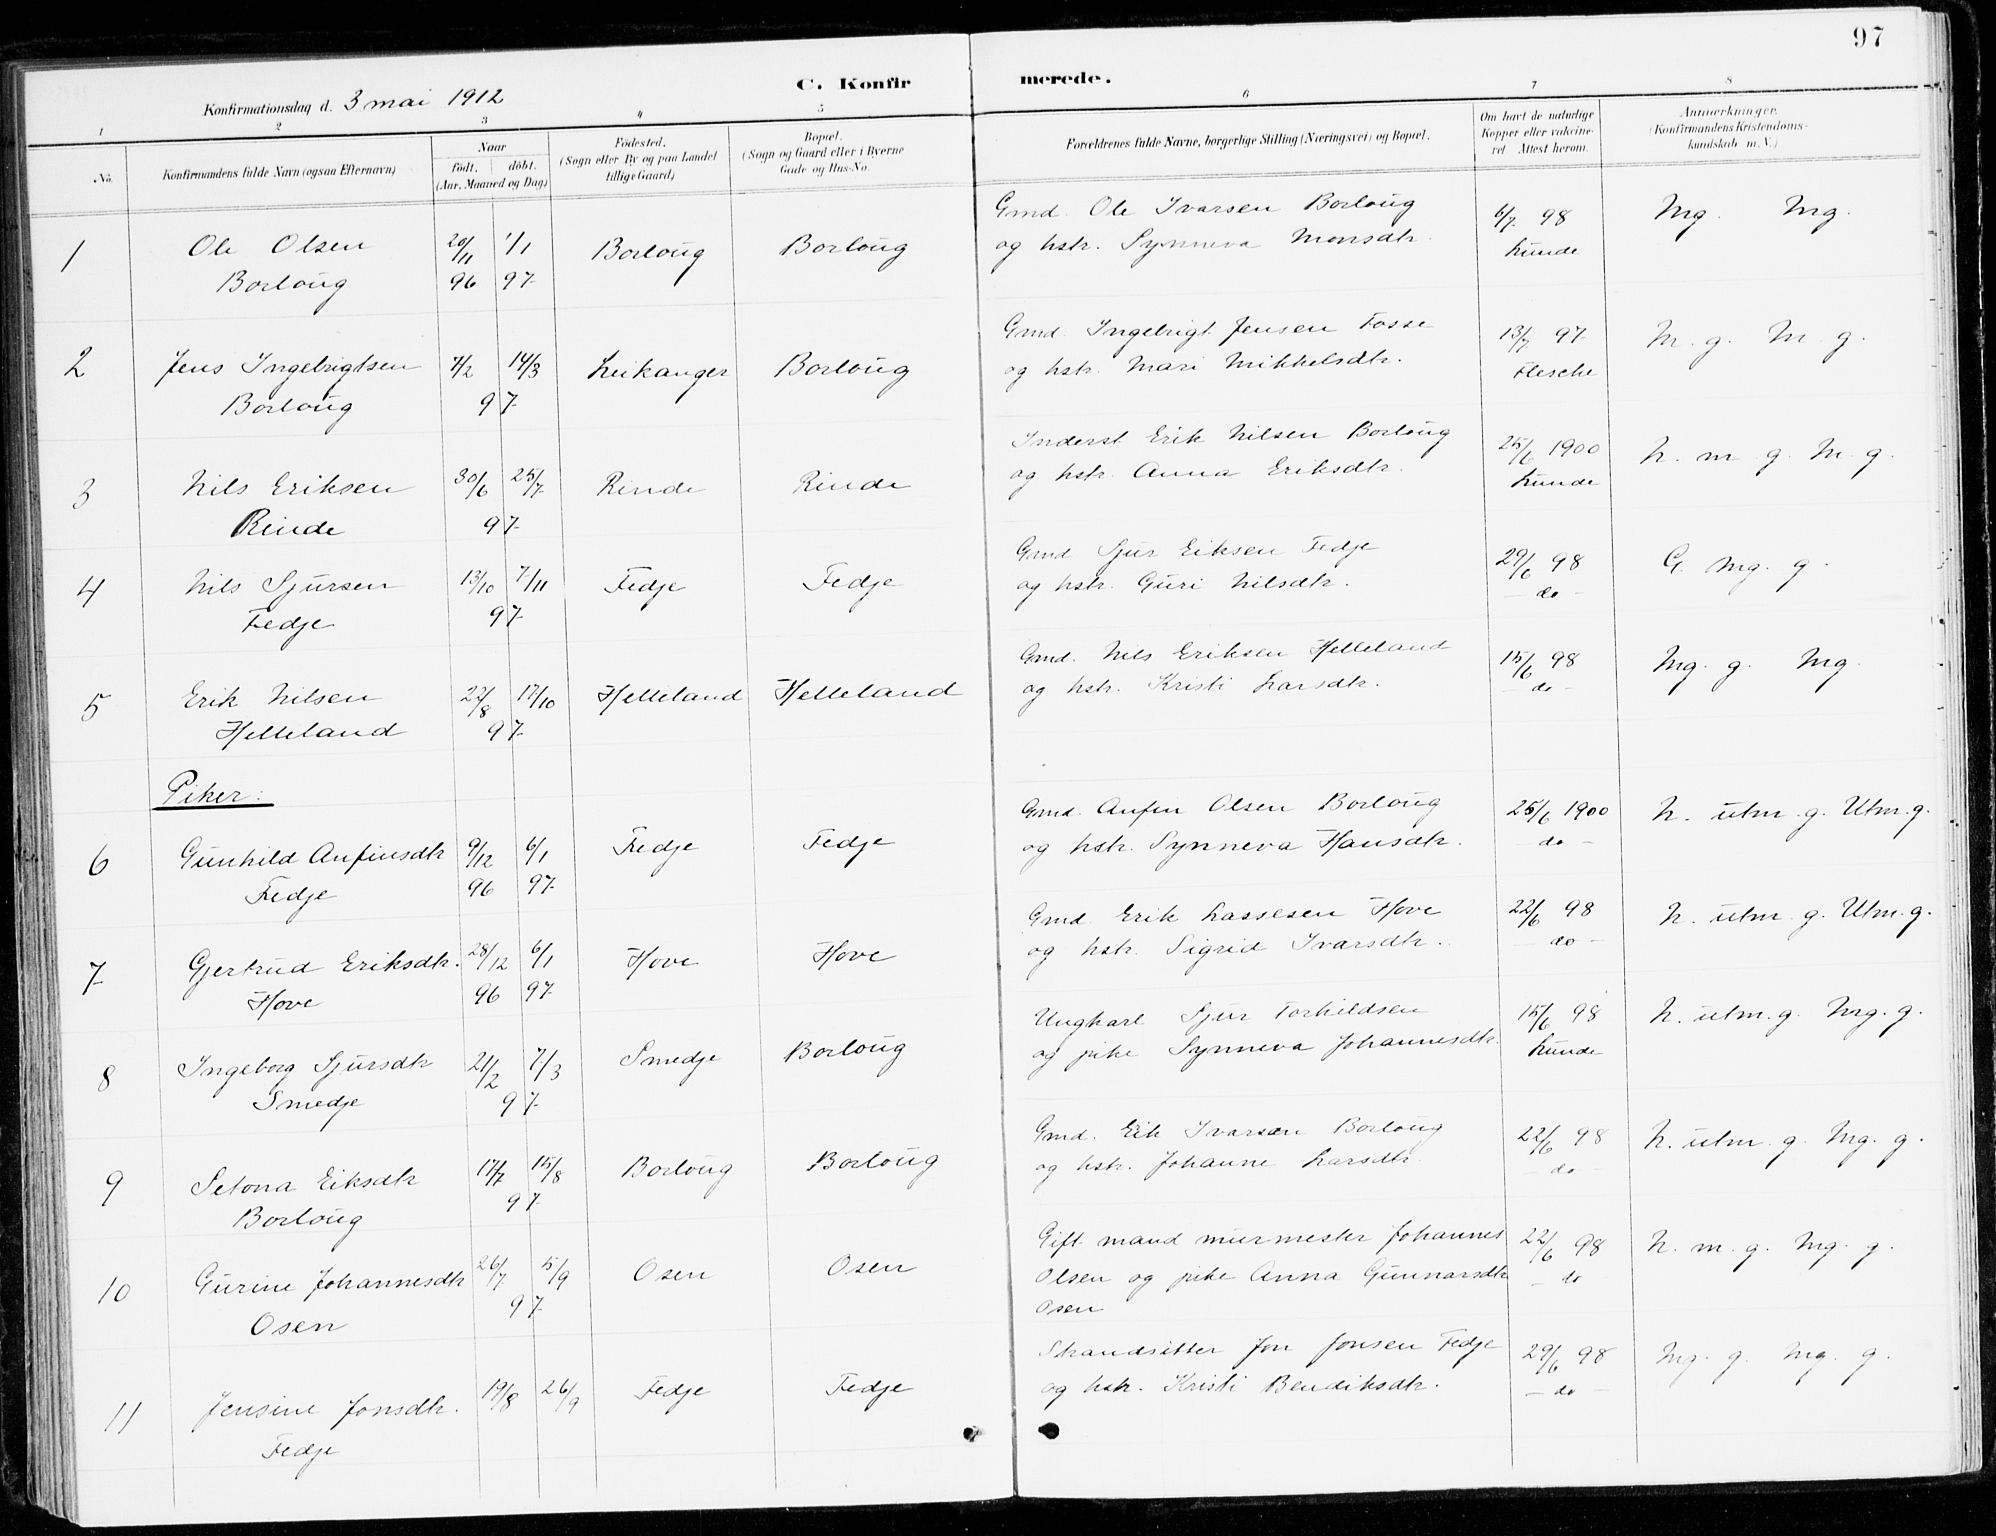 97
C. Konfir merede.
Konfirmationsdag d. 3 mai 1912
1 2 3 4 5 6 7 8
No.
Konfirmandens fulde Navn (ogsaa Efternavn)
Naar
født. døbt.
(Aar, Maaned og Dag)
Fødested.
(Sogn eller By og paa Landet
tillige Gaard)
Bopæl.
(Sogn og Gaard eller i Byerne
Gade og Hus-No.
Forældrenes fulde Navne, borgerlige Stilling (Næringsvei) og Bopæl.
Om havt de naturlige
Kopper eller vaksine-
ret Attest herom.
Anmerkninger.
(Konfirmandens Kristendoms-
kundskab m. V.)
1 Ole Olsen 20/11 1/1 Borloug Borloug Gmd. Ole Ivarsen Borloug 6/7 98 Mg. Mg.
Borloug 96 97 og hstr. Synneva Monsdtr. Lunde
2 Jens Ingebrigtsen 7/2 14/3 Leikanger Borloug Gmd. Ingebrigt Jensen Fosse 13/7 97 M. g. M. g.
Borloug 97 og hstr. Mari Mikkelsdtr. Flesche
3 Nils Eriksen 30/6 25/7 Rinde Rinde Inderst Erik Nilsen Borloug 25/6 1900 N. m. g. M. g.
Rinde 97 og hstr. Anna Eriksdtr. Lunde
4 Nils Sjursen 13/10 7/11 Fedje Fedje Gmd Sjur Eiksen Fedje 29/6 98 G. Mg. g.
Fedje 97 og hstr. Guri Nilsdtr. - do -
5 Erik Nilsen 22/8 17/10 Helleland Helleland Gmd. Nils Eriksen Helleland 15/6 98 Mg. g. Mg.
Helleland 97 og hstr. Kristi Larsdtr. - do -
Piker:
6 Gunhild Anfinsdtr 9/12 6/1 Fedje Fedje Gmd. Anfin Olsen Borloug 25/6 1900 N. utm. g. Utm. g.
Fedje 96 97 og hstr. Synneva Hansdtr. - do -
7 Gjertrud Eriksdtr. 28/12 6/1 Hove Hove Gmd. Erik Lassesen Hove 22/6 98 N. utm. g. Utm. g.
Hove 96 97 og hstr. Sigrid Ivarsdtr. - do -
8 Ingeborg Sjursdtr 21/2 7/3 Smedje Borloug Ungkarl Sjur Torkildsen 15/6 98 N. utm. g. Mg. g.
Smedje 97 og pike Synneva Johannesdtr. Lunde
9 Setona Eiksdtr 17/7 15/8 Borloug Borloug Gmd. Eik Ivarsen Borloug 22/6 98 N. utm. g. Mg. g.
Borloug 97 og hstr. Johanne Larsdtr. - do -
10 Gurine Johannesdtr 26/7 5/9 Osen Osen Gift mand murmester Johannes 22/6 98 N. m. g. Mg. g.
Osen 97 Olsen og pike Anna Gunnarsdtr - do
Osen
11 Jensine Jonsdtr. 19/8 26/9 Fedje Fedje Strandsitter Jon Jonsen Fedje 29/6 98 Mg. g. Mg. g.
Fedje og hstr. Kristi Bendiksdtr. - do -